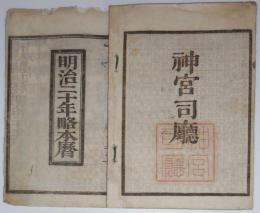 神宮司廳
明治二十年略本暦